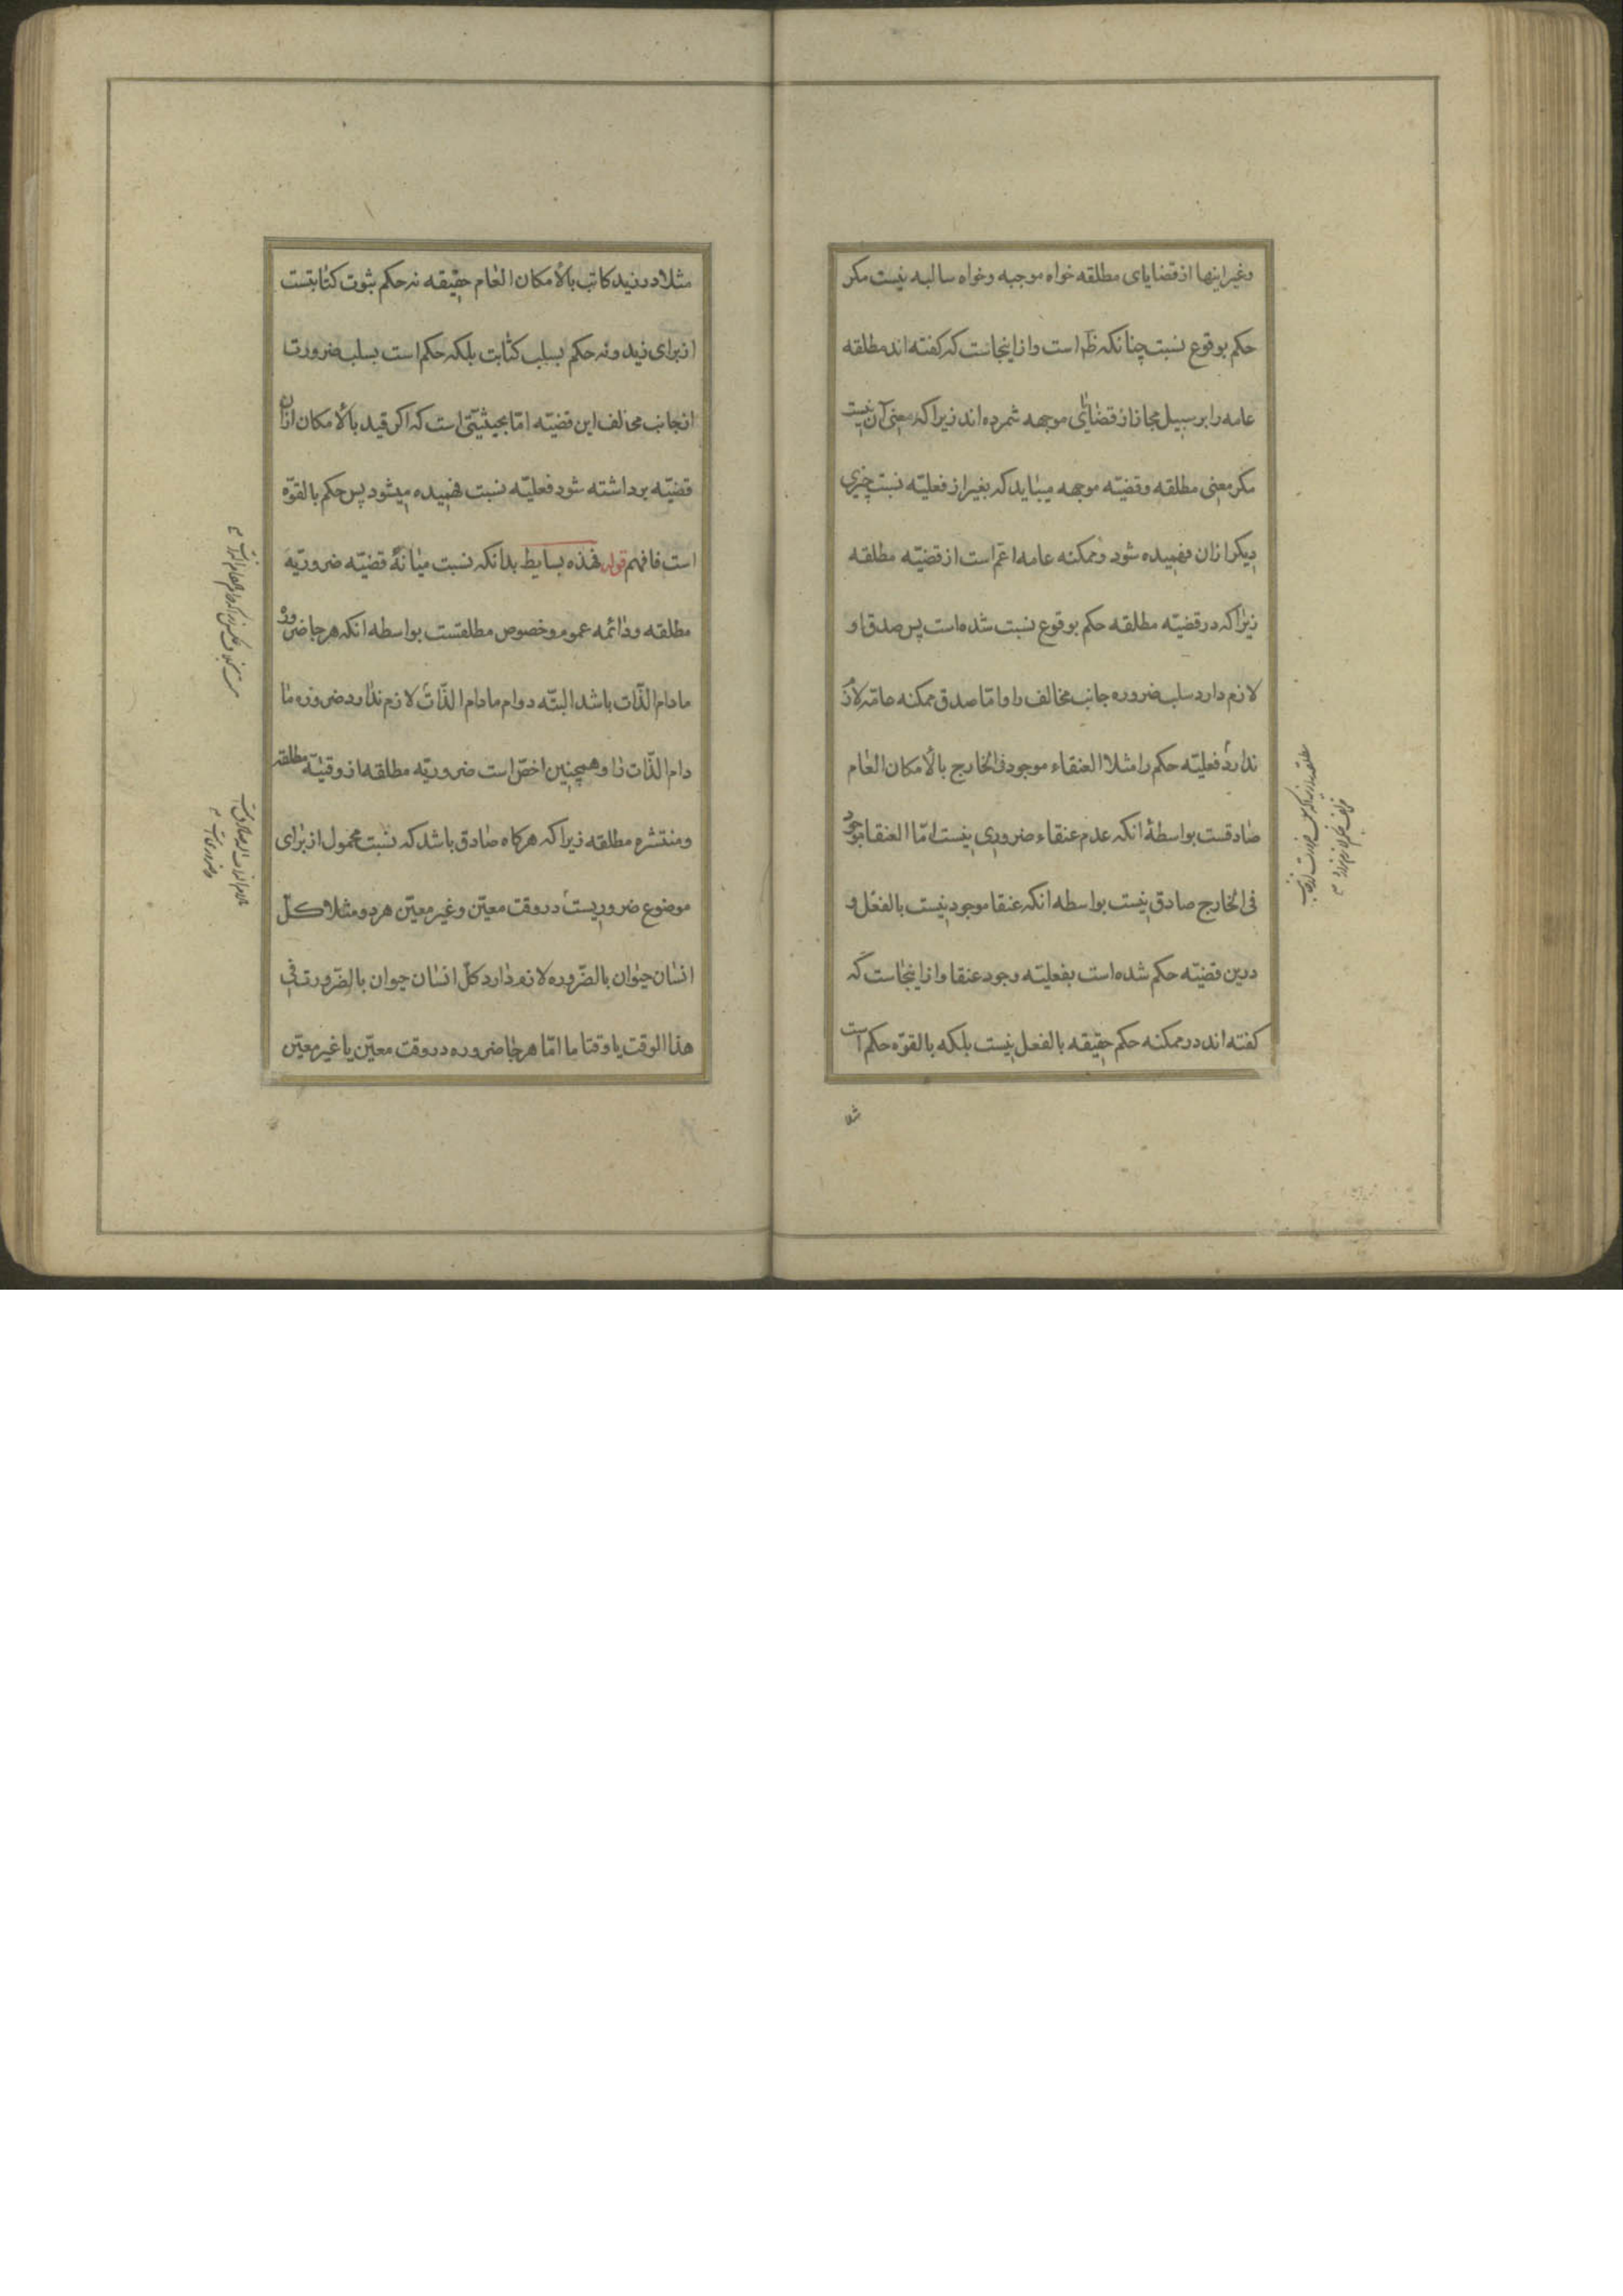 وغیر اینها از قضایای مطلقه خواه موجبه وخواه سالبه نیست مکر
حکم بوقوع نسبت چنانکه ظ است وازاینجاست که کفته اند مطلقه
عامه را بر سبیل مجاز از قضایای موجهه شمرده اند زیرا که معنی آن نیست
مکر معنی مطلقه وقضیّه موجهه میباید که بغیر از فعلیّه نسبت چیزی
دیکر ازان فهمیده شود وممکنه عامه اعمّ است از قضیّه مطلقه
زیرا که در قضیّه مطلقه حکم بوقوع نسبت شده است پس صدق او
لازم دارد سلب ضروره جانب مخالف را واما صدق ممکنه عامّه لازم
ندارد فعلیّه حکم را مثلا العنقاء موجود فی الخارج بالأمکان العام
صادقست بواسطهٔ انکه عدم عنقاء ضروری نیست امّا العنقا موجود
فی الخارج صادق نیست بواسطه انکه عنقا موجود نیست بالفعل و
درین قضیّه حکم شده است بفعلیّه وجود عنقا وازاینجاست که
کفته اند در ممکنه حکم حقیقه بالفعل نیست بلکه بالقوّه حکم است
مثلا
مثلا در زید کاتب بالأمکان العام حقیقه نه حکم بثبوت کتابتست
از برای زید ونه حکم بسلب کتابت بلکه حکم است بسلب ضرورت
از جانب مخالف این قضیّه امّا بحیثیّتی است که اکر قید بالأمکان ازان
قضیّه برداشته شود فعلیّه نسبت فهمیده میشود پس حکم بالقوّه
است فافهم قوله فهذه بسایط بدانکه نسبت میانهٔ قضیّه ضروریّه
مطلقه ودائمه عموم وخصوص مطلقست بواسطه انکه هر جا ضروره
مادام الذّات باشد البتّه دوام مادام الذّات لازم ندارد ضروره ما
دام الذّات را وهمچنین اخصّ است ضروریّه مطلقه از وقتیّه مطلقه
ومنتشره مطلقه زیرا که هرکاه صادق باشد که نسبت محمول از برای
موضوع ضروریست در وقت معیّن وغیر معیّن هر دو مثلا کلّ
انسان حیوان بالضّروره لازم دارد کلّ انسان حیوان بالضّرورت فی
هذا الوقت یا وقتا ما امّا هر جا ضروره در وقت معیّن یا غیر معیّن